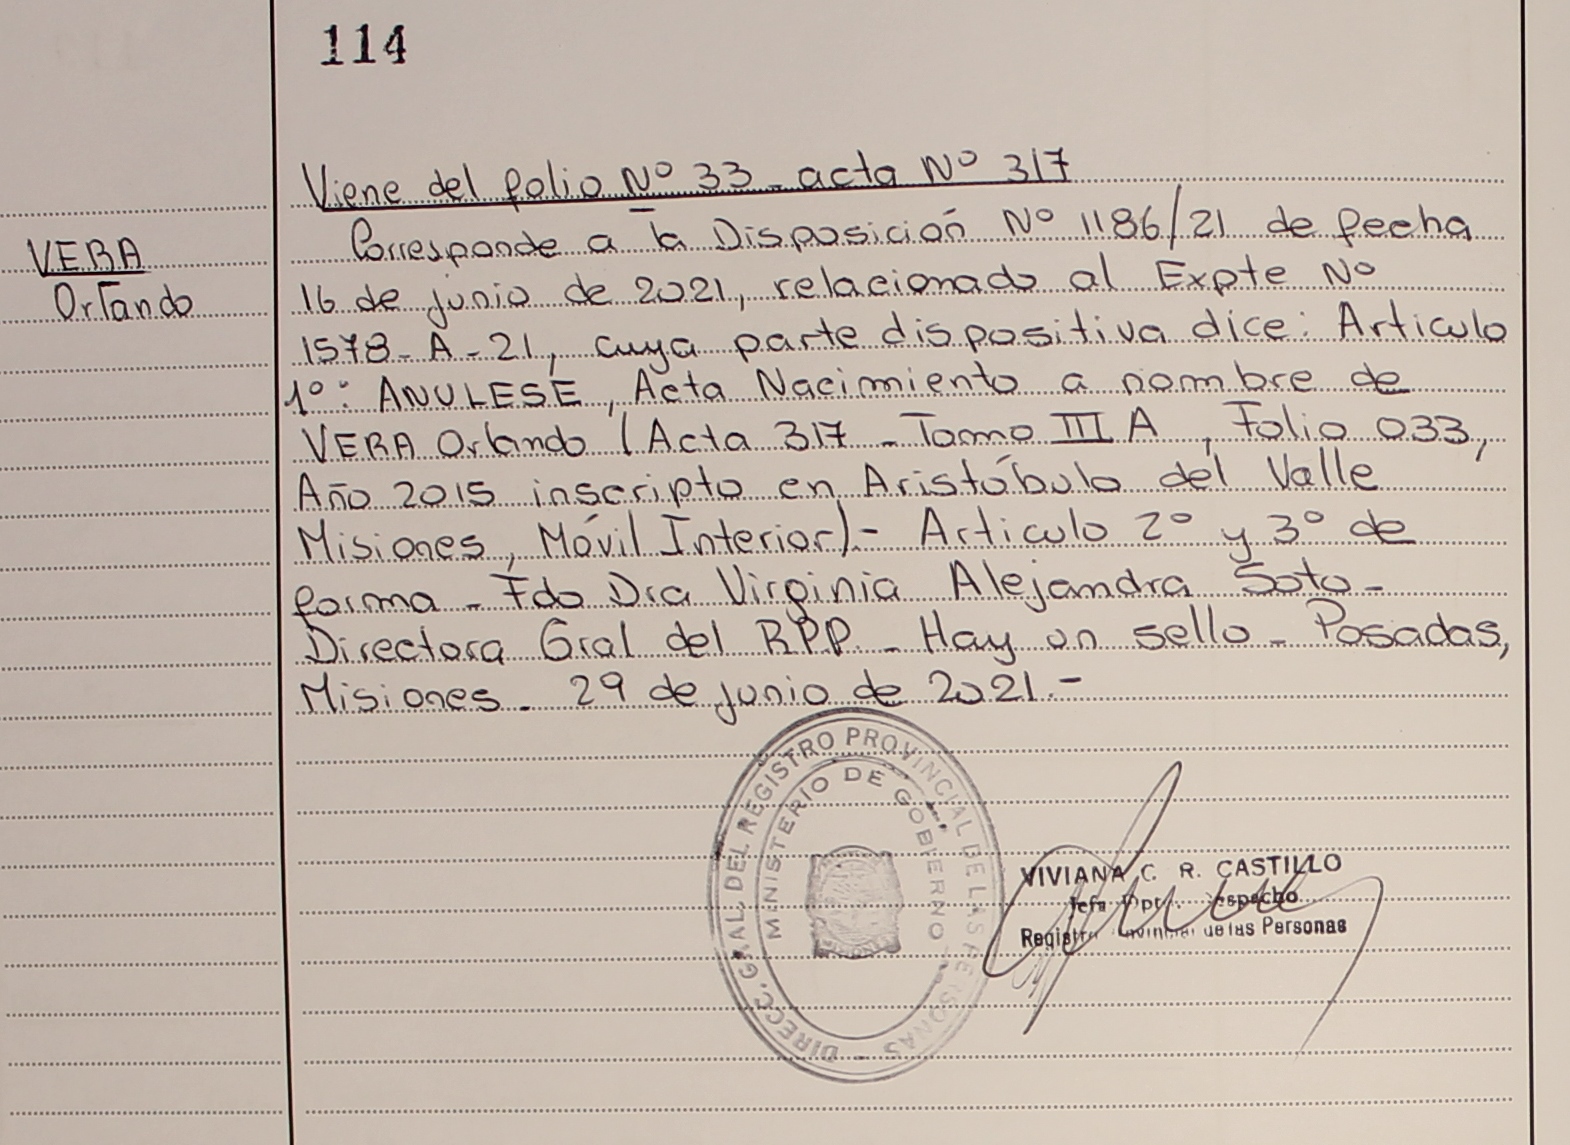 114
Viene del folio Nº 33 - acta Nº 317
VERA
Orlando
Corresponde a la Disposición Nº 1186/21 de fecha
16 de junio de 2021, relacionado al Expte Nº
1578-A-21, cuya parte dispositiva dice: Articulo
1º: ANULESE, Acta Nacimiento a nombre de
VERA Orlando (Acta 317 - Tomo III A, Folio 033,
Año 2015 inscripto en Aristóbulo del Valle
Misiones, Móvil Interior).- Articulo 2º y 3º de
forma - Fdo Dra Virginia Alejandra Soto -
Directora Gral del RPP - Hay un sello - Posadas,
Misiones. 29 de junio de 2021.-
DIRECC. GRAL. DEL REGISTRO PROVINCIAL DE LAS PERSONAS -
MINISTERIO DE GOBIERNO
VIVIANA C. R. CASTILLO
Jefa Dpt. Despacho
Registro Provincial de las Personas